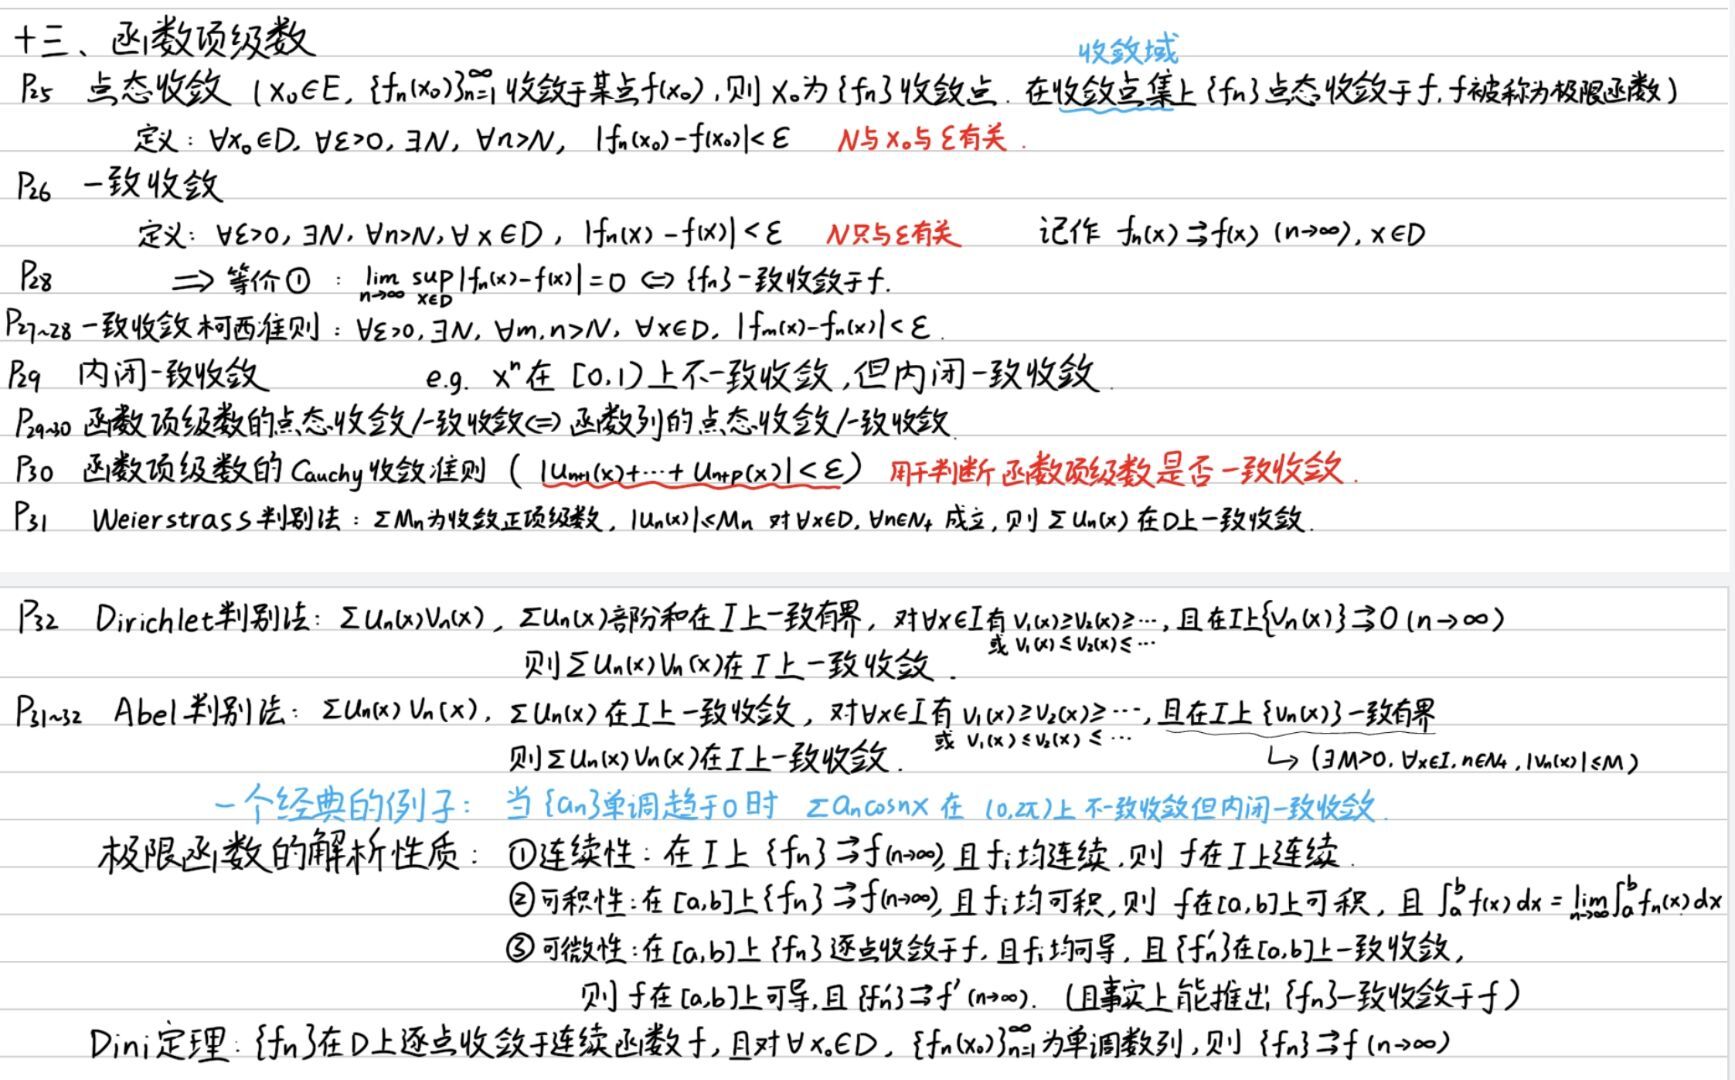 十三、函数项级数
收敛域
P25 点态收敛 (x₀∈E, {fₙ(x₀)}ₙ₌₁^∞ 收敛于某点f(x₀), 则 x₀为{fₙ}收敛点. 在收敛点集上{fₙ}点态收敛于f, f被称为极限函数)
定义: ∀x₀∈D, ∀ε>0, ∃N, ∀n>N, |fₙ(x₀)-f(x₀)|<ε N与x₀与ε有关.
P26 一致收敛
定义: ∀ε>0, ∃N, ∀n>N, ∀x∈D, |fₙ(x)-f(x)|<ε N只与ε有关 记作 fₙ(x)⇉f(x) (n→∞), x∈D
P28 ⇒ 等价①: lim_{n→∞} sup_{x∈D}|fₙ(x)-f(x)|=0 ⇔ {fₙ}一致收敛于f.
P27~28 一致收敛柯西准则: ∀ε>0, ∃N, ∀m,n>N, ∀x∈D, |fₘ(x)-fₙ(x)|<ε.
P29 内闭一致收敛 e.g. xⁿ在[0,1)上不一致收敛,但内闭一致收敛.
P29~30 函数项级数的点态收敛/一致收敛⇔函数列的点态收敛/一致收敛.
P30 函数项级数的Cauchy收敛准则 (|uₙ₊₁(x)+…+uₙ₊ₚ(x)|<ε) 用于判断函数项级数是否一致收敛.
P31 Weierstrass判别法: ΣMₙ为收敛正项级数, |uₙ(x)|≤Mₙ 对∀x∈D, ∀n∈N₊ 成立, 则Σuₙ(x)在D上一致收敛.
P32 Dirichlet判别法: Σuₙ(x)vₙ(x), Σuₙ(x)部分和在I上一致有界, 对∀x∈I有 v₁(x)≥v₂(x)≥…, 且在I上{vₙ(x)}⇉0 (n→∞)
或 v₁(x)≤v₂(x)≤…
则Σuₙ(x)vₙ(x)在I上一致收敛.
P31~32 Abel判别法: Σuₙ(x)vₙ(x), Σuₙ(x)在I上一致收敛, 对∀x∈I有 v₁(x)≥v₂(x)≥…, 且在I上{vₙ(x)}一致有界
或 v₁(x)≤v₂(x)≤…
则Σuₙ(x)vₙ(x)在I上一致收敛. ↳ (∃M>0, ∀x∈I, n∈N₊, |vₙ(x)|≤M)
一个经典的例子: 当{aₙ}单调趋于0时 Σaₙcosnx 在 (0,2π)上不一致收敛但内闭一致收敛.
极限函数的解析性质: ①连续性: 在I上{fₙ}⇉f(n→∞), 且fᵢ均连续, 则 f在I上连续.
②可积性: 在[a,b]上{fₙ}⇉f(n→∞), 且fᵢ均可积, 则 f在[a,b]上可积, 且 ∫ₐᵇf(x)dx=lim_{n→∞}∫ₐᵇfₙ(x)dx
③可微性: 在[a,b]上{fₙ}逐点收敛于f, 且fᵢ均可导, 且{fₙ'}在[a,b]上一致收敛,
则 f在[a,b]上可导, 且{fₙ'}⇉f' (n→∞). (且事实上能推出{fₙ}一致收敛于f)
Dini定理: {fₙ}在D上逐点收敛于连续函数f, 且对∀x₀∈D, {fₙ(x₀)}ₙ₌₁^∞为单调数列, 则 {fₙ}⇉f (n→∞)